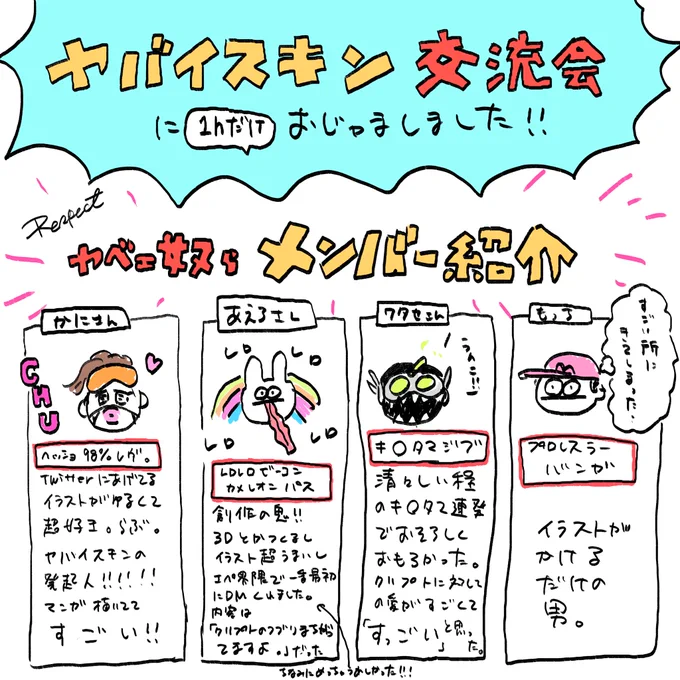 ヤバイスキン 交流会
に 1hだけ おじゃましました!!
Respect
ヤベェ奴ら メンバー紹介
かにさん
CHU
ヘッショ 98%レヴ。
Twitterにあげてる
イラストがゆるくて
超好き。らぶ。
ヤバイスキンの
発起人!!!!!!
マンガ描いてて
すごい!!
あえるさし
レロ
レロ
レロ
レロ
レロレロベーコン
カメレオンパス
創作の鬼!!
3Dとかつくるし
イラスト超うまいし
エペ界隈で一番最初
にDMくれました。
内容は
「クリプトのつづりまちがっ
てますよ。」だった
ちなみにめっちゃうれしかった!!!
ワタセさん
うんこ!!
キ〇タマジブ
清々しい程
のキ〇タマ連発
でおそろしく
おもろかった。
クリプトに対して
の愛がすごくて
「すっごい」と思った。
もっち
すごい所に
きてしまった…
プロレスラー
バンガ
イラストが
かける
だけの
男。